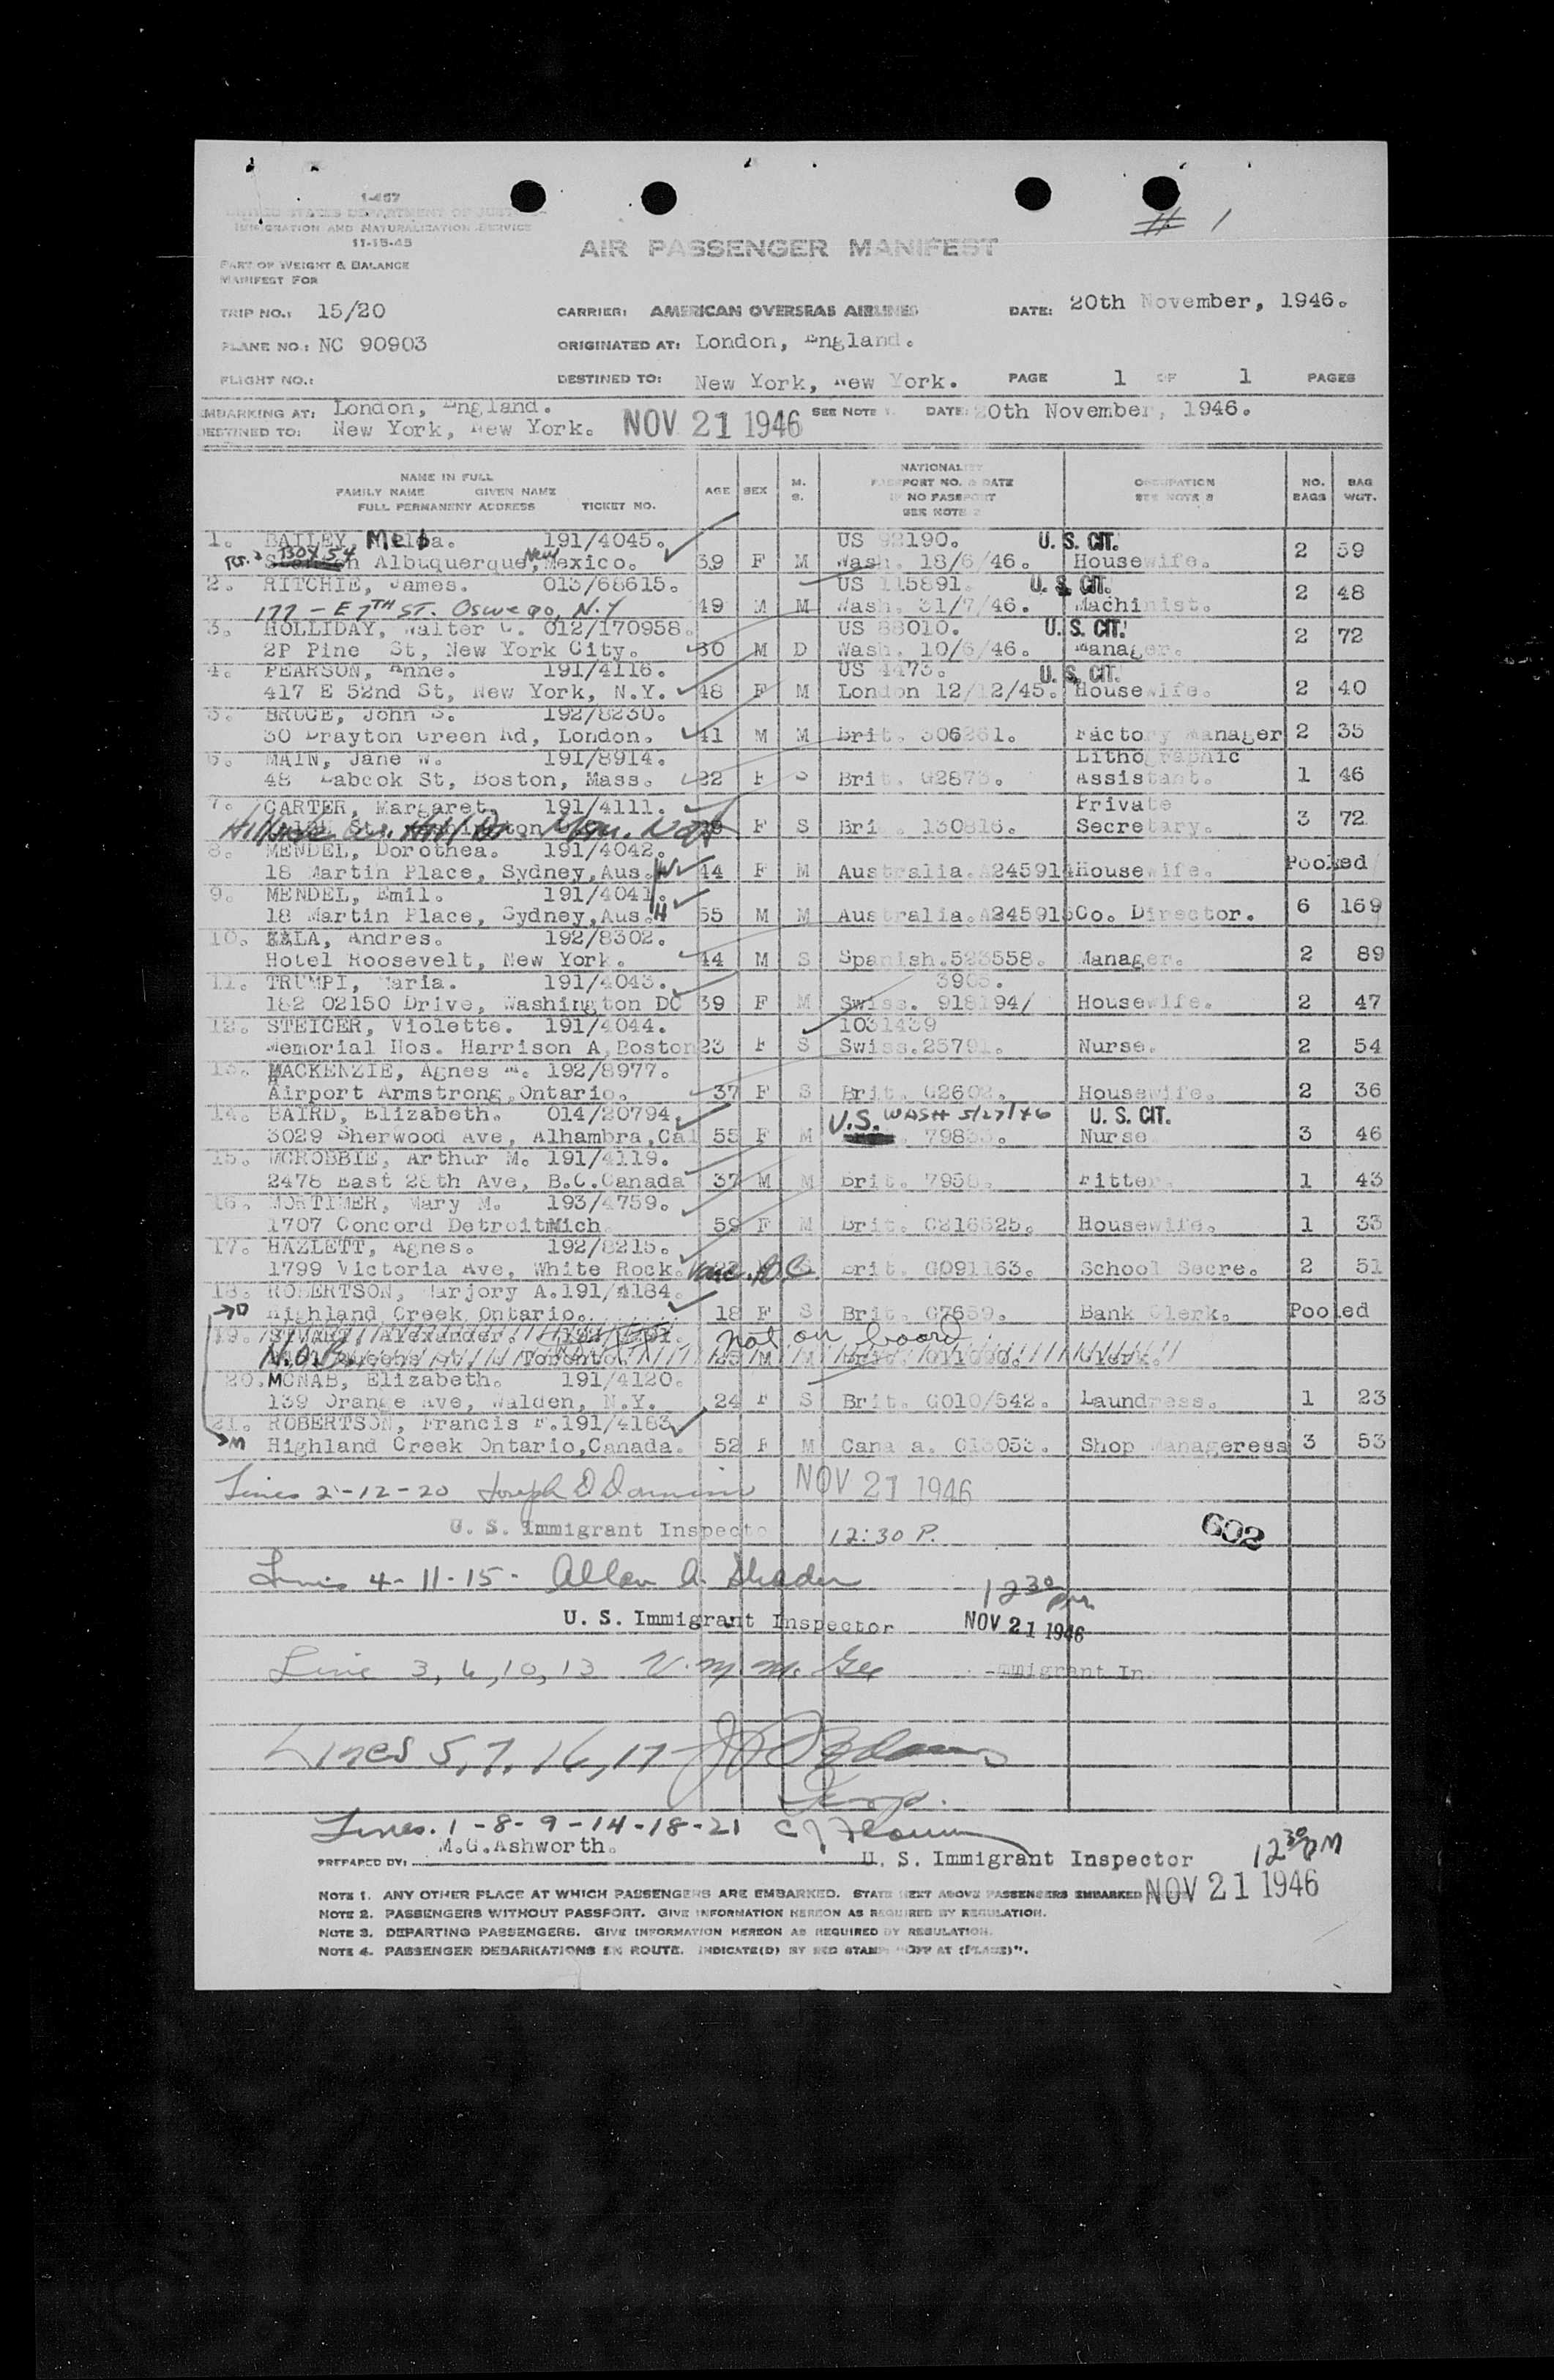 # 1
1-467
UNITED STATES DEPARTMENT OF JUSTICE
IMMIGRATION AND NATURALIZATION SERVICE
11-15-45
AIR PASSENGER MANIFEST
PART OF WEIGHT & BALANCE
MANIFEST FOR
TRIP NO.: 15/20 CARRIER: AMERICAN OVERSEAS AIRLINES DATE: 20th November, 1946.
PLANE NO.: NC 90903 ORIGINATED AT: London, England.
FLIGHT NO.: DESTINED TO: New York, New York. PAGE 1 OF 1 PAGES
EMBARKING AT: London, England. SEE NOTE 1. DATE: 20th November, 1946.
DESTINED TO: New York, New York. NOV 21 1946
NAME IN FULL
FAMILY NAME GIVEN NAME
FULL PERMANENT ADDRESS TICKET NO. AGE SEX M. S. NATIONALITY PASSPORT NO. & DATE IF NO PASSPORT SEE NOTE 2 OCCUPATION SEE NOTE 3 NO. BAGS BAG WGT.
1. BAILEY, Melba. 191/4045. US 92190. U. S. CIT.
BOX 54 Albuquerque, New Mexico. 39 F M Wash. 18/6/46. Housewife. 2 59
2. RITCHIE, James. 013/68615. US 115891. U. S. CIT.
177 - E 7TH ST. Oswego, N.Y 49 M M Wash. 31/7/46. Machinist. 2 48
3. HOLLIDAY, Walter C. 012/170958. US 88010. U. S. CIT.
2P Pine St, New York City. 30 M D Wash. 10/6/46. Manager. 2 72
4. PEARSON, Anne. 191/4116. US 4473. U. S. CIT.
417 E 52nd St, New York, N.Y. 48 F M London 12/12/45. Housewife. 2 40
5. BRUCE, John S. 192/8230.
30 Drayton Green Rd, London. 41 M M Brit. 306261. Factory Manager 2 35
6. MAIN, Jane W. 191/8914. Lithographic
48 Babcok St, Boston, Mass. 22 F S Brit. G2873. Assistant. 1 46
7. CARTER, Margaret. 191/4111. Private
F S Brit. 130816. Secretary. 3 72
8. MENDEL, Dorothea. 191/4042.
18 Martin Place, Sydney, Aus. W 44 F M Australia. A245914 Housewife. Pooled
9. MENDEL, Emil. 191/4041.
18 Martin Place, Sydney, Aus. H 55 M M Australia. A245915 Co. Director. 6 169
10. KALA, Andres. 192/8302.
Hotel Roosevelt, New York. 44 M S Spanish. 523558. Manager. 2 89
11. TRUMPI, Maria. 191/4043. 3905.
182 02150 Drive, Washington DC 39 F M Swiss. 918194/ Housewife. 2 47
12. STEIGER, Violette. 191/4044. 1031439
Memorial Hos. Harrison A, Boston 23 F S Swiss. 25791. Nurse. 2 54
13. MACKENZIE, Agnes M. 192/8977.
Airport Armstrong, Ontario. 37 F S Brit. G2602. Housewife. 2 36
14. BAIRD, Elizabeth. 014/20794. U.S. WASH 5/27/46 U. S. CIT.
3029 Sherwood Ave, Alhambra, Cal 55 F M Nurse 3 46
15. MCROBBIE, Arthur M. 191/4119.
2478 East 28th Ave, B.C. Canada 37 M M Brit. Fitter. 1 43
16. MORTIMER, Mary M. 193/4759.
1707 Concord Detroit Mich 59 F M Brit. C216525. Housewife. 1 33
17. HAZLETT, Agnes. 192/8215.
1799 Victoria Ave, White Rock. Vanc. B.C. S Brit. G091163. School Secre. 2 51
18. ROBERTSON, Marjory A. 191/4184.
→D Highland Creek Ontario. 18 F S Brit. G7659. Bank Clerk. Pooled
19. Alexander. not on board
N.O.B. Queens Toronto. M Clerk.
20. MCNAB, Elizabeth. 191/4120.
139 Orange Ave, Walden, N.Y. 24 F S Brit. G010/542. Laundress. 1 23
21. ROBERTSON, Francis F. 191/4183
→M Highland Creek Ontario, Canada. 52 F M Canada. 013053. Shop Manageress 3 53
Lines 2-12-20 Joseph D NOV 21 1946
U. S. Immigrant Inspector 12:30 P. 602
Lines 4-11-15- Allen A. Shader 12 30 pm
U. S. Immigrant Inspector NOV 21 1946
Line 3, 6, 10, 13 V. M. McGee Immigrant In.
Lines 5, 7, 16, 17
Insp.
Lines. 1-8-9-14-18-21
PREPARED BY: M.G. Ashworth. U. S. Immigrant Inspector 12 30 PM
NOV 21 1946
NOTE 1. ANY OTHER PLACE AT WHICH PASSENGERS ARE EMBARKED. STATE NEXT ABOVE PASSENGERS EMBARKED
NOTE 2. PASSENGERS WITHOUT PASSPORT. GIVE INFORMATION HEREON AS REQUIRED BY REGULATION.
NOTE 3. DEPARTING PASSENGERS. GIVE INFORMATION HEREON AS REQUIRED BY REGULATION.
NOTE 4. PASSENGER DEBARKATIONS EN ROUTE. INDICATE(D) BY RED STAMP "OFF AT (PLACE)".